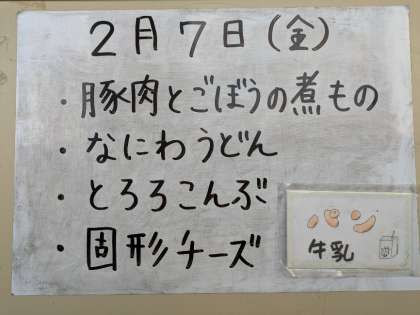 2月7日(金)
・豚肉とごぼうの煮もの
・なにわうどん
・とろろこんぶ
・固形チーズ
パン
牛乳